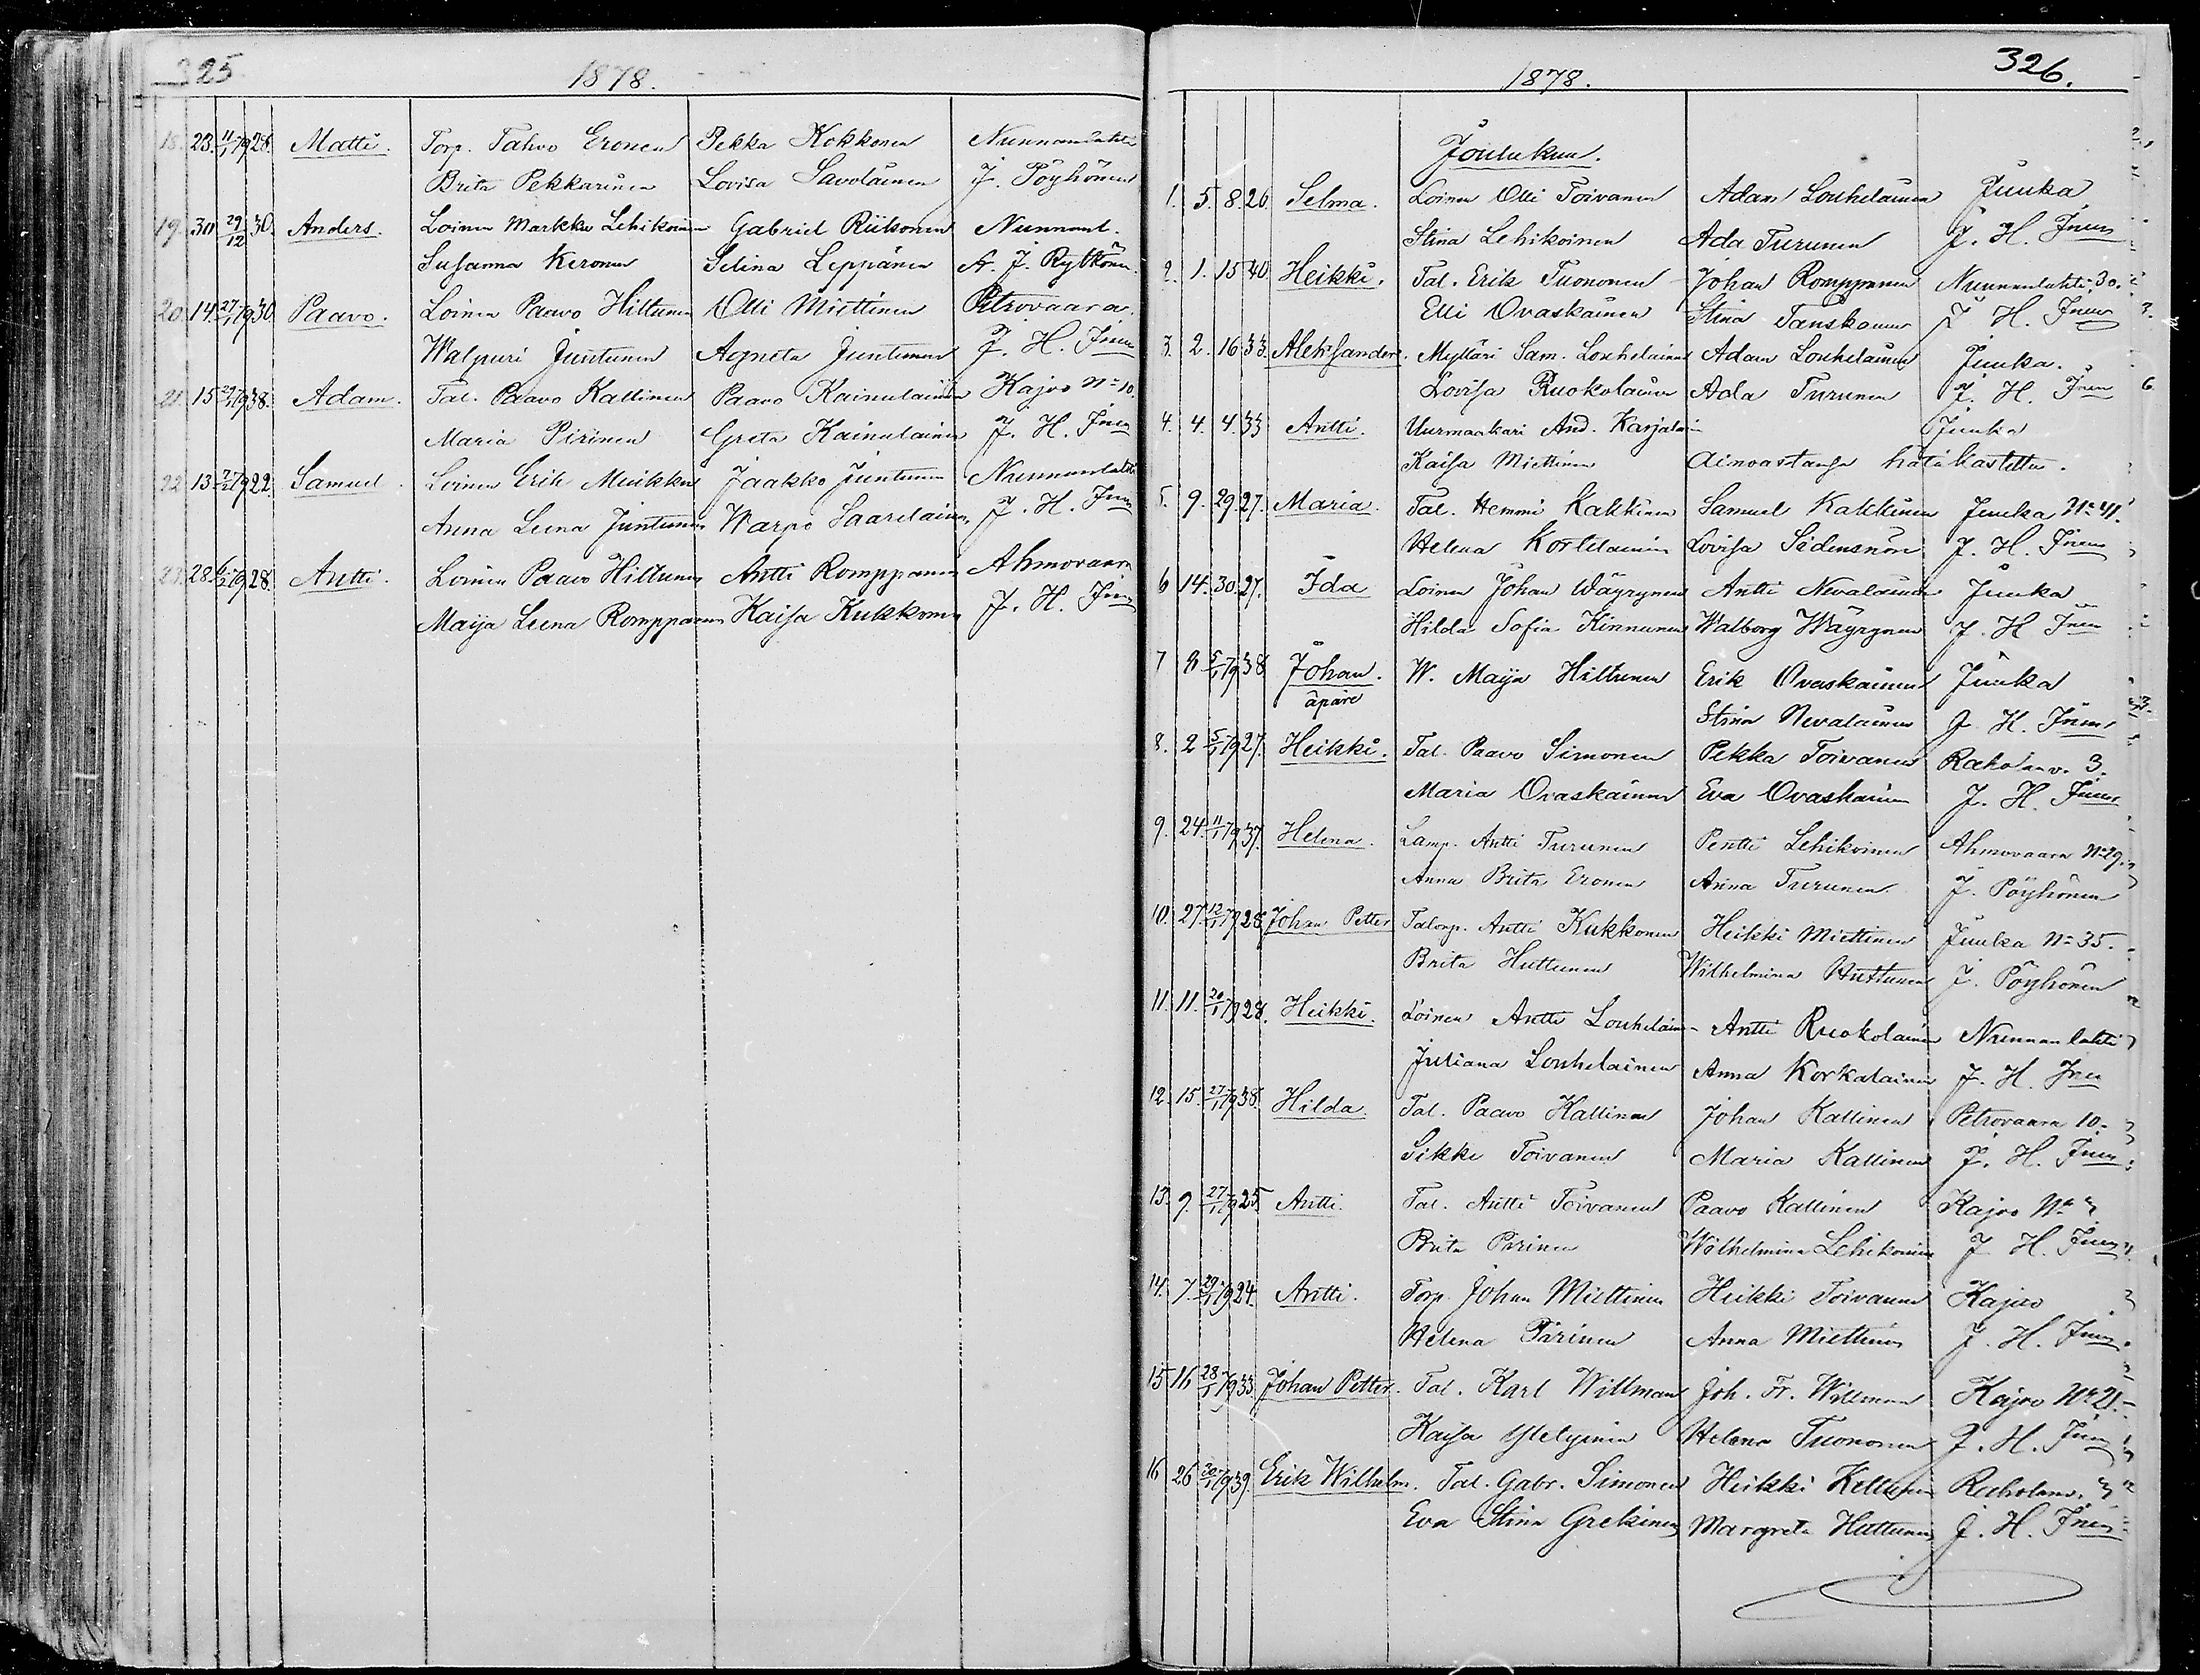 325
1878.
18. 23. 11/1 79 28. Matti. Torp. Tahvo Eronen Pekka Kokkonen Nunnanlahti
Brita Pekkarinen Lovisa Savolainen J. Pöyhönen
19. 30 29/12 30. Anders. Loinen Markku Lehikoinen Gabriel Riikonen Nunnanl.
Susanna Keronen Selina Leppänen A. J. Rytkönen
20. 14. 27/1 79 30. Paavo. Loinen Paavo Hiltunen Olli Miettinen Petrovaara.
Walpuri Juntunen Agneta Juntunen J. H. Jnen
21. 15 79 38. Adam. Tal. Paavo Kallinen Paavo Kainulainen Kajoo No 10.
Maria Pirinen Greta Kainulainen J. H. Jnen
22. 13 79 22. Samuel. Loinen Erik Muikku Jaakko Juntunen Nunnanlahti
Anna Leena Juntunen Warpo Saarelainen J. H. Jnen
23. 28. 79 28. Antti. Loinen Paavo Hiltunen Antti Romppanen Ahmovaara
Maija Leena Romppanen Kaisa Kukkonen J. H. Jnen
326.
1878.
Joulukuu.
1. 5. 8. 26. Selma. Loinen Olli Toivanen Adam Louhelainen Juuka
Stina Lehikoinen Ada Turunen J. H. Jnen
2. 1. 15 40. Heikki. Tal. Erik Tuononen Johan Romppanen Nunnanlahti 30.
Elli Ovaskainen Stina Tanskanen J. H. Jnen
3. 2. 16. 33. Aleksander. Mylläri Sam. Louhelainen Adam Louhelainen Juuka.
Lovisa Ruokolainen Ada Turunen J. H. Jnen
4. 4. 4. 33 Antti. Uurmaakari And. Karjalain Juuka
Kaisa Miettinen Ainoastansa hätäkastettu.
5. 9. 29. 27. Maria. Tal. Hemmi Kakkinen Samuel Kakkinen Juuka No 41.
Helena Kortelainen Lovisa Sidensnöre J. H. Jnen
6 14. 30. 27. Ida Loinen Johan Wäyrynen Antti Nevalainen Juuka
Hilda Sofia Kinnunen Walborg Wäyrynen J. H. Jnen
7 8 5/1 79 38 Johan. W. Maija Hiltunen Erik Ovaskainen Juuka
äpäre Stina Nevalainen J. H. Jnen
8. 2 5/1 79 27. Heikki. Tal. Paavo Simonen Pekka Toivanen Raholanv. 3.
Maria Ovaskainen Eva Ovaskainen J. H. Jnen
9. 24. 11/1 79 37. Helena. Lamp. Antti Turunen Pentti Lehikoinen Ahmovaara No 29.
Anna Brita Eronen Anna Turunen J. Pöyhönen
10. 27. 12/1 79 28. Johan Petter Talonp. Antti Kukkonen Heikki Miettinen Juuka No 35.
Brita Huttunen Wilhelmina Huttunen J. Pöyhönen
11. 11. 20/1 79 28. Heikki. Loinen Antti Louhelainen Antti Ruokolainen Nunnanlahti
Juliana Louhelainen Anna Korkalainen J. H. Jnen
12. 15. 27/1 79 38. Hilda. Tal. Paavo Kallinen Johan Kallinen Petrovaara 10.
Sikke Toivanen Maria Kallinen J. H. Jnen
13. 9. 27/1 79 25. Antti. Tal. Antti Toivanen Paavo Kallinen Kajoo No
Brita Pirinen Wilhelmina Lehikoinen J. H. Jnen
14. 7. 29/1 79 24. Antti. Torp. Johan Miettinen Heikki Toivanen Kajoo
Helena Pirinen Anna Miettinen J. H. Jnen
15 16 28/1 79 33. Johan Petter. Tal. Karl Willman Joh. Fr. Willman Kajoo No 21.
Kaisa Helena Tuononen J. H. Jnen
16 26 30/1 79 39. Erik Wilhelm. Tal. Gabr. Simonen Heikki Keltunen Raholanv.
Eva Stina Grekinen Margreta Huttunen J. H. Jnen